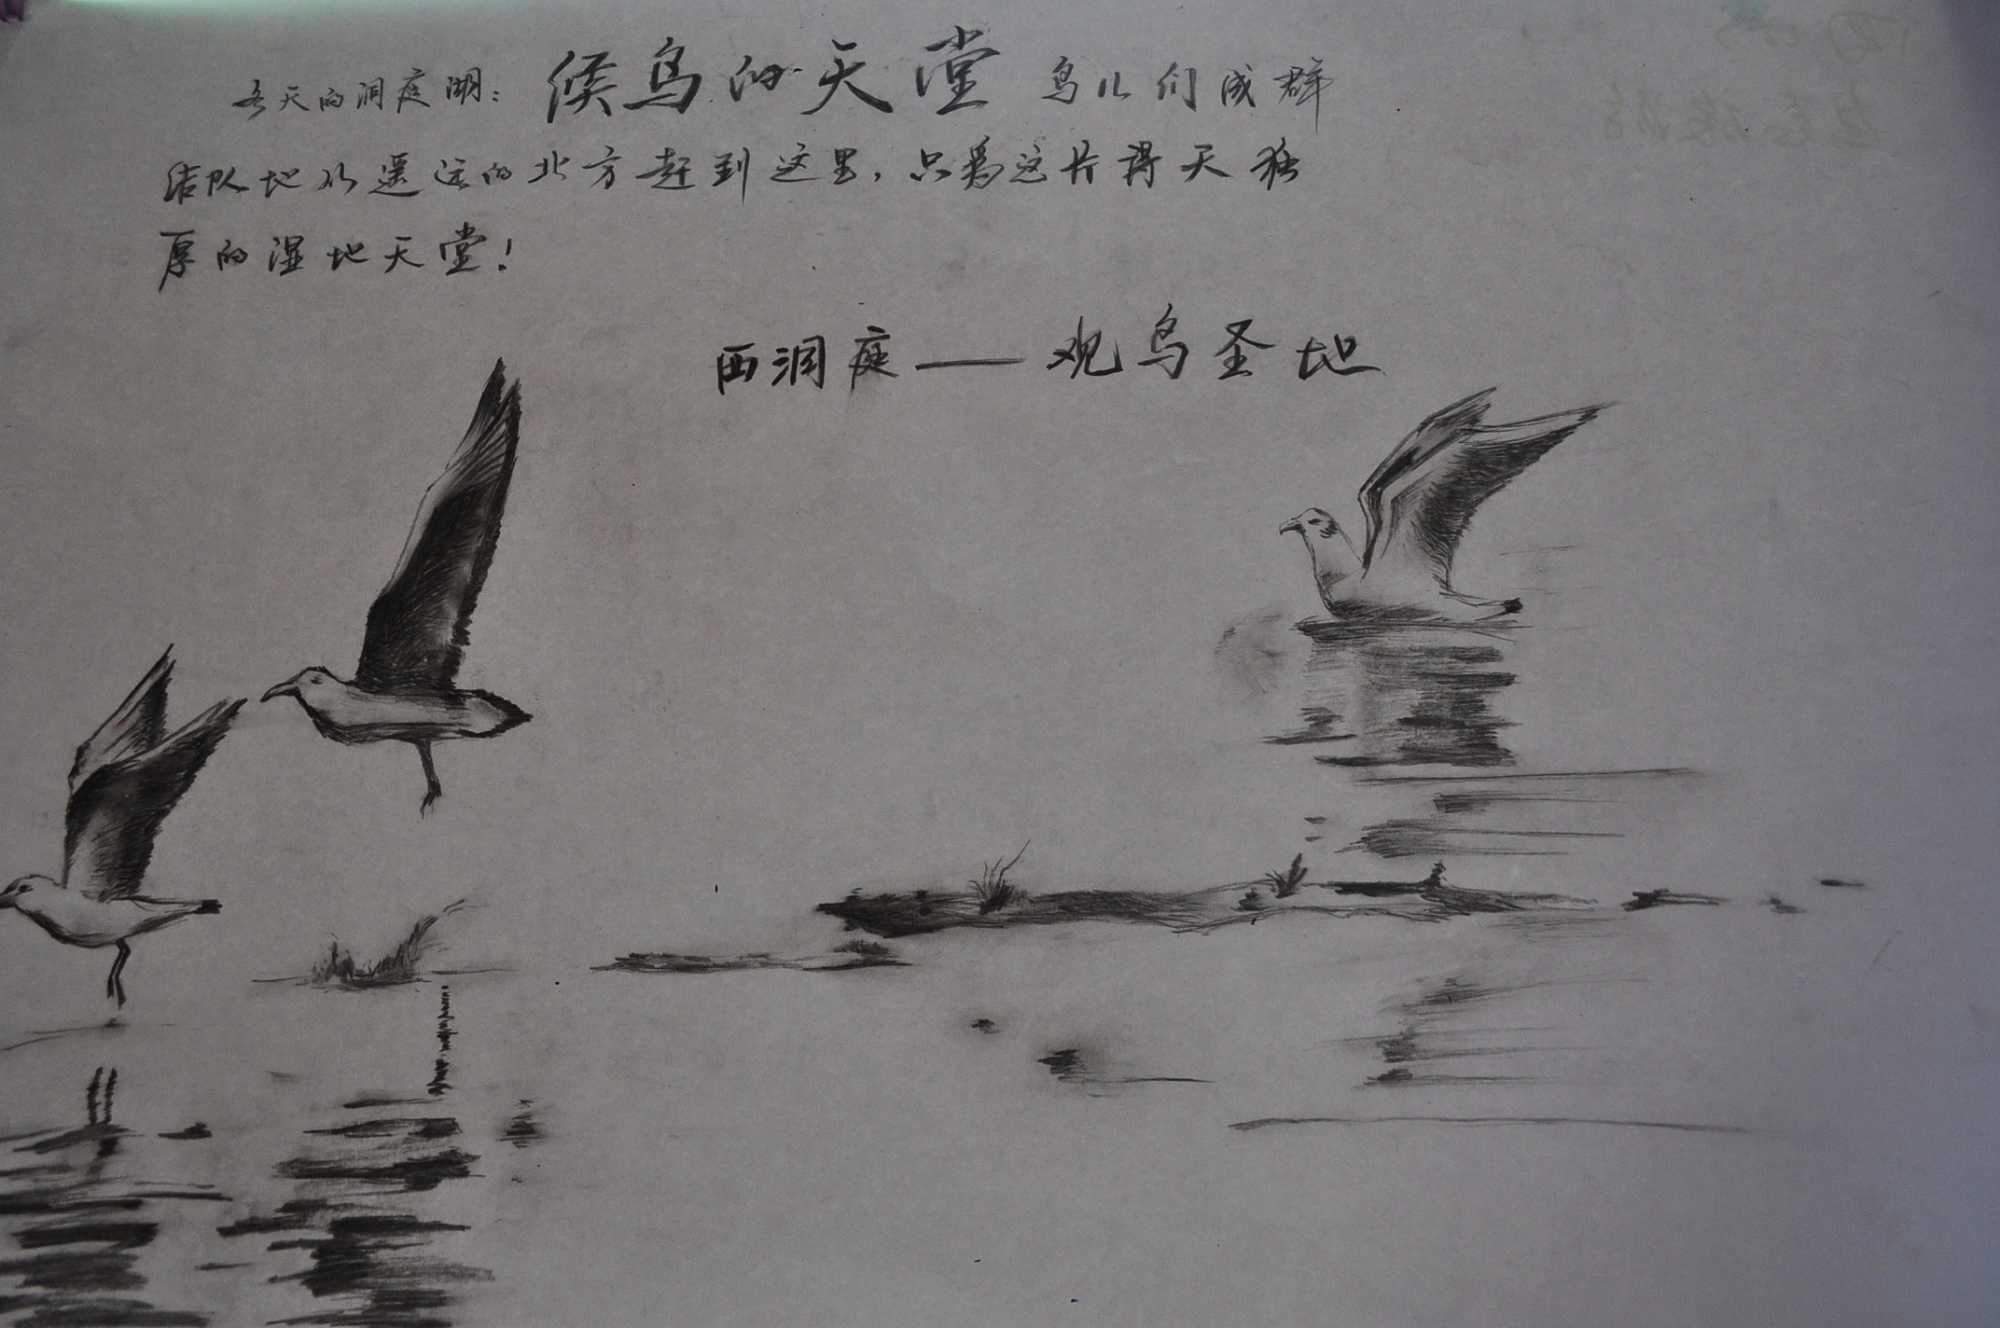 冬天的洞庭湖：候鸟的天堂 鸟儿们成群
结队地从遥远的北方赶到这里，只为这片得天独
厚的湿地天堂！
西洞庭——观鸟圣地